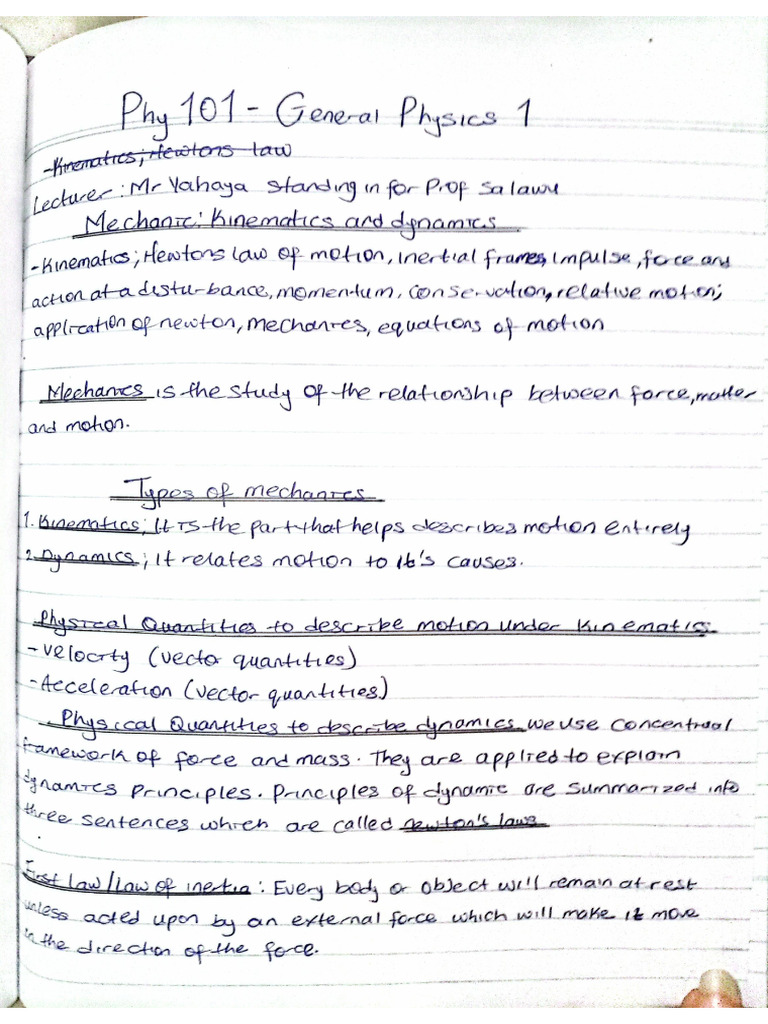 Phy 101 - General Physics 1
-Kinematics; Newtons law
Lecturer: Mr Yahaya standing in for Prof Salawu
Mechanic: Kinematics and dynamics
-Kinematics; Newtons law of motion, inertial frames, impulse, force and
action at a distu-bance, momentum, conservation, relative motion;
application of newton, mechanics, equations of motion
Mechanics is the study of the relationship between force, matter
and motion.
Types of mechanics
1. Kinematics; It is the part that helps describes motion entirely
2. Dynamics; it relates motion to it's causes.
Physical Quantities to describe motion under kinematics
-velocity (vector quantities)
-Acceleration (vector quantities)
Physical Quantities to describe dynamics we use
framework of force and mass. They are applied to explain
dynamics principles. Principles of dynamic are summarized into
three sentences which are called newton's laws
First law/law of inertia: Every body or object will remain at rest
unless acted upon by an external force which will make it move
in the direction of the force.